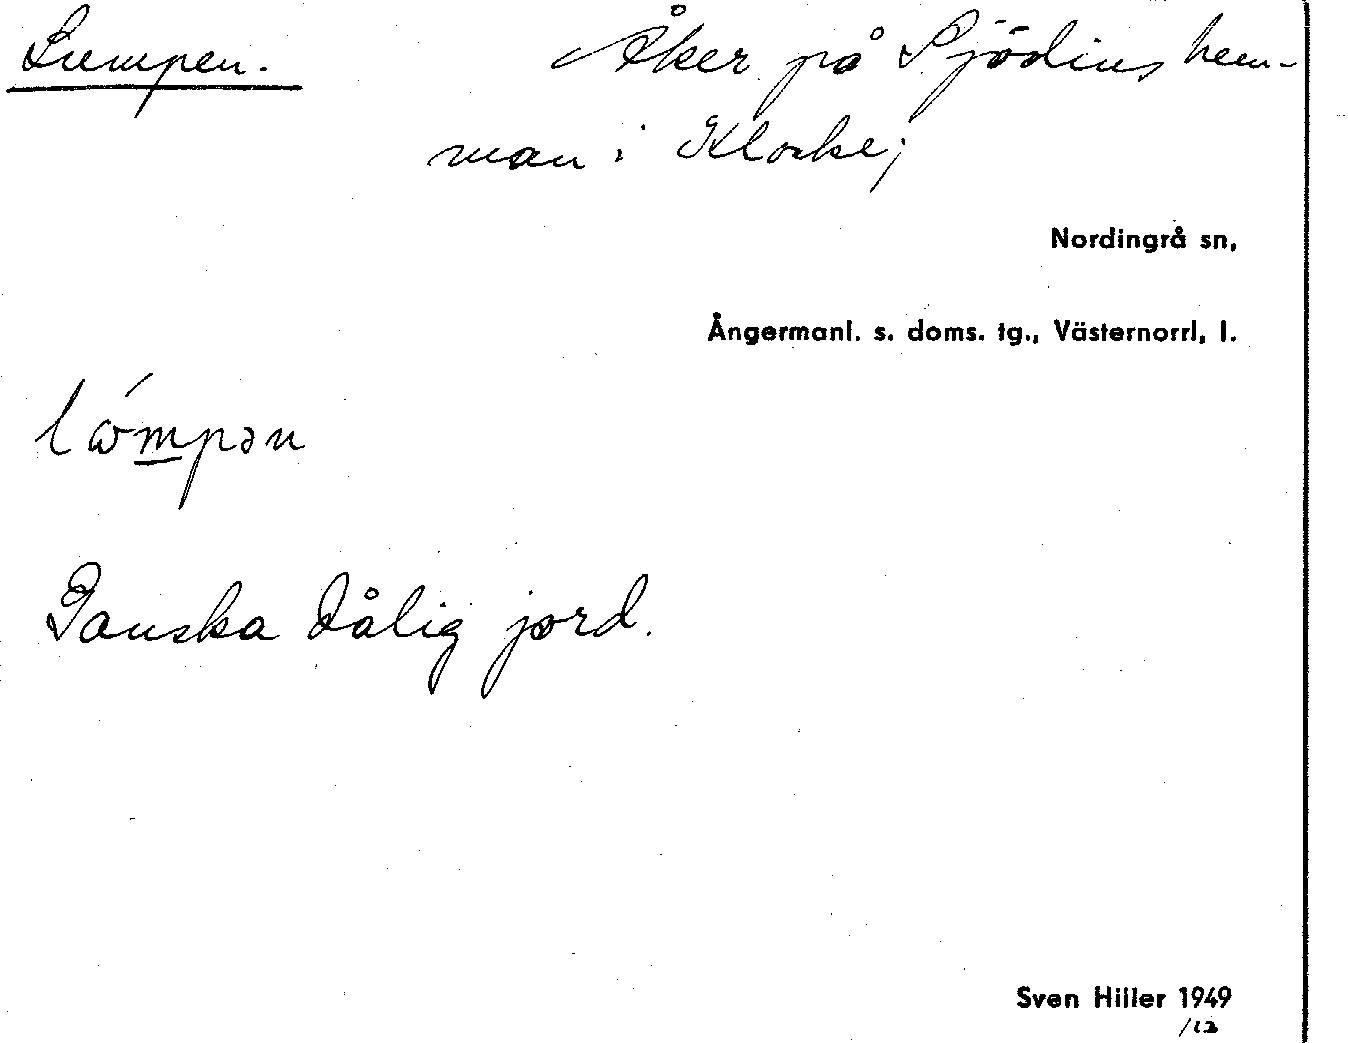 Lumpen. Åker på Sjödins hem-
man i Klocke;
Nordingrå sn,
Ångermanl. s. doms. tg., Västernorrl. l.
lɷ́mpən
Ganska dålig jord.
Sven Hiller 1949
/12